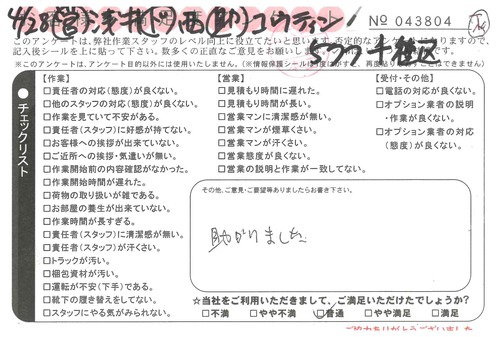 4/28 営)浅井(作)西(助)コウティン
No 043804
このアンケートは、弊社作業スタッフのレベル向上に役立てたいと思います。否定的なアンケートでありますので、
記入後シールを上に貼って下さい。数多くの正直なご意見をお願いします
さつつ 千種区
※このアンケートは、アンケート目的以外には使用いたしません。(※情報保護シール)
【作業】 【営業】 【受付・その他】
チェックリスト
□責任者の対応(態度)が良くない。
□他のスタッフの対応(態度)が良くない。
□作業を見ていて不安がある。
□責任者(スタッフ)に好感が持てない。
□お客様への挨拶が出来ていない。
□ご近所への挨拶・気遣いが無い。
□作業開始前の内容確認がなかった。
□作業開始時間が遅れた。
□荷物の取り扱いが雑である。
□お部屋の養生が出来ていない。
□作業時間が長すぎる。
□責任者(スタッフ)に清潔感が無い。
□責任者(スタッフ)が汗くさい。
□トラックが汚い。
□梱包資材が汚い。
□運転が不安(下手)である。
□靴下の履き替えをしてない。
□スタッフにやる気がみられない。
□見積もり時間に遅れた。
□見積もり時間が長い。
□営業マンに清潔感が無い。
□営業マンが煙草くさい。
□営業マンが汗くさい。
□営業態度が良くない。
□営業の説明と作業が一致してない。
□電話の対応が良くない。
□オプション業者の説明
・作業が良くない。
□オプション業者の対応
(態度)が良くない。
その他、ご意見・ご要望等ありましたらお書き下さい。
助かりました
☆当社をご利用いただきまして、ご満足いただけたでしょうか?
□不満 □やや不満 □普通 □やや満足 □満足
ご協力ありがとうございました